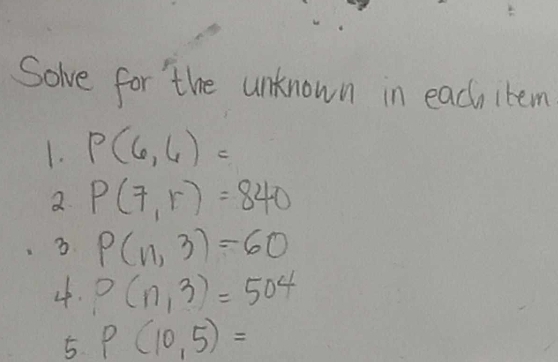 Solve for the unknown in each item.
1. P(6,6) =
2. P(7, r) = 840
3. P(n, 3) = 60
4. P(n, 3) = 504
5. P(10,5) =